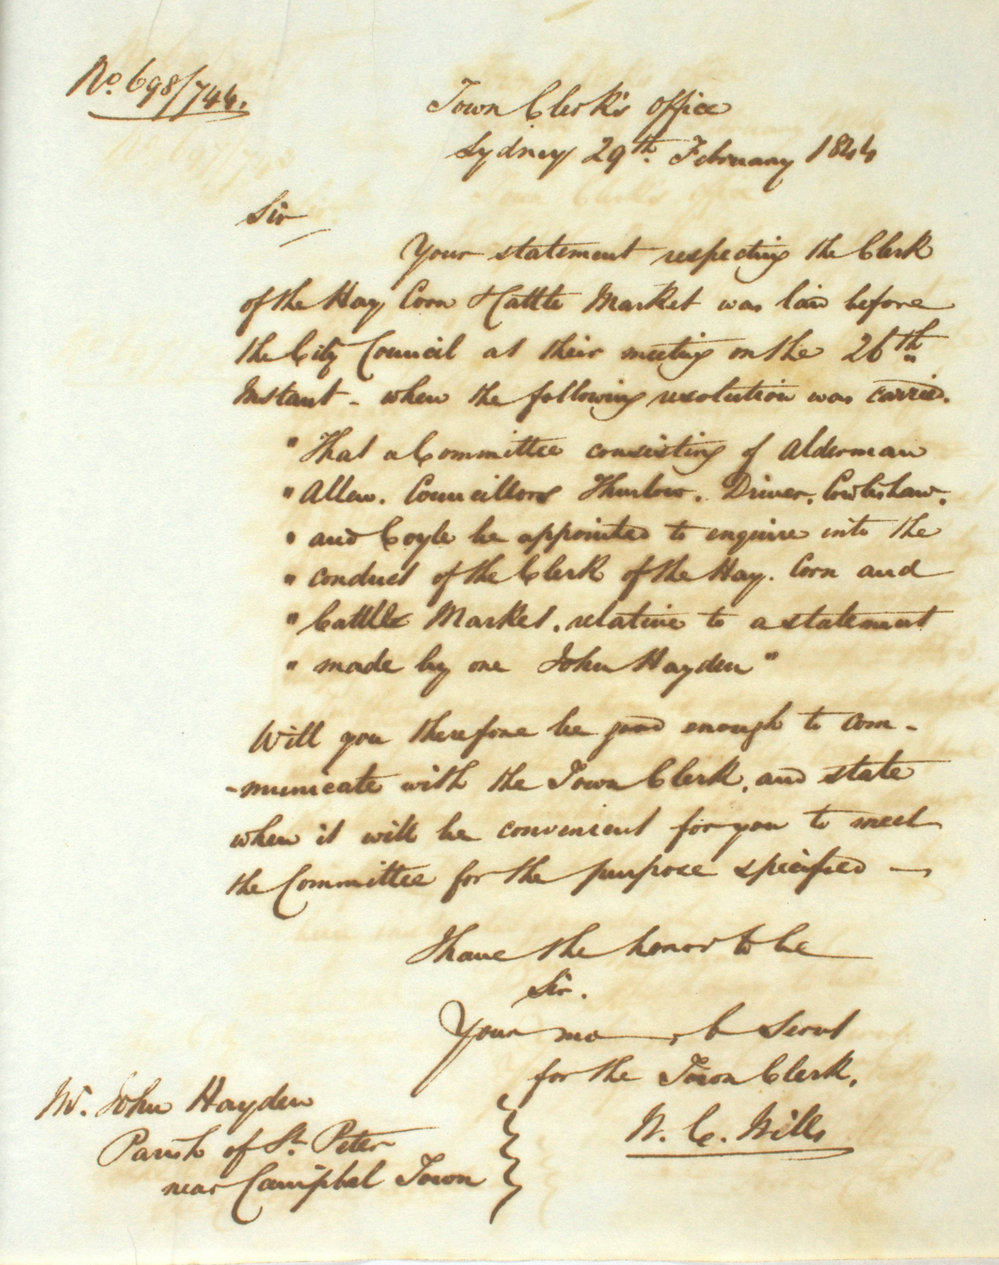 No. 698/744.
Town Clerk's office
Sydney 29th February 1844
Sir
Your statement respecting the Clerk
of the Hay Corn & Cattle Market was laid before
the City Council at their meeting on the 26th
Instant - when the following resolution was carried.
" That a Committee consisting of Alderman
" Allen. Councillors Thurlow. Driver. Cowlishaw.
" and Coyle be appointed to enquire into the
" conduct of the Clerk of the Hay. Corn and
" Cattle Market, relative to a statement
" made by one John Hayden"
Will you therefore be good enough to com-
-municate with the Town Clerk, and state
when it will be convenient for you to meet
the Committee for the purpose specified —
I have the honor to be
Sir.
Your mo— b Servt
for the Town Clerk.
W. C. Wills
Mr. John Hayden
Parish of St. Peter
near Campbel Town